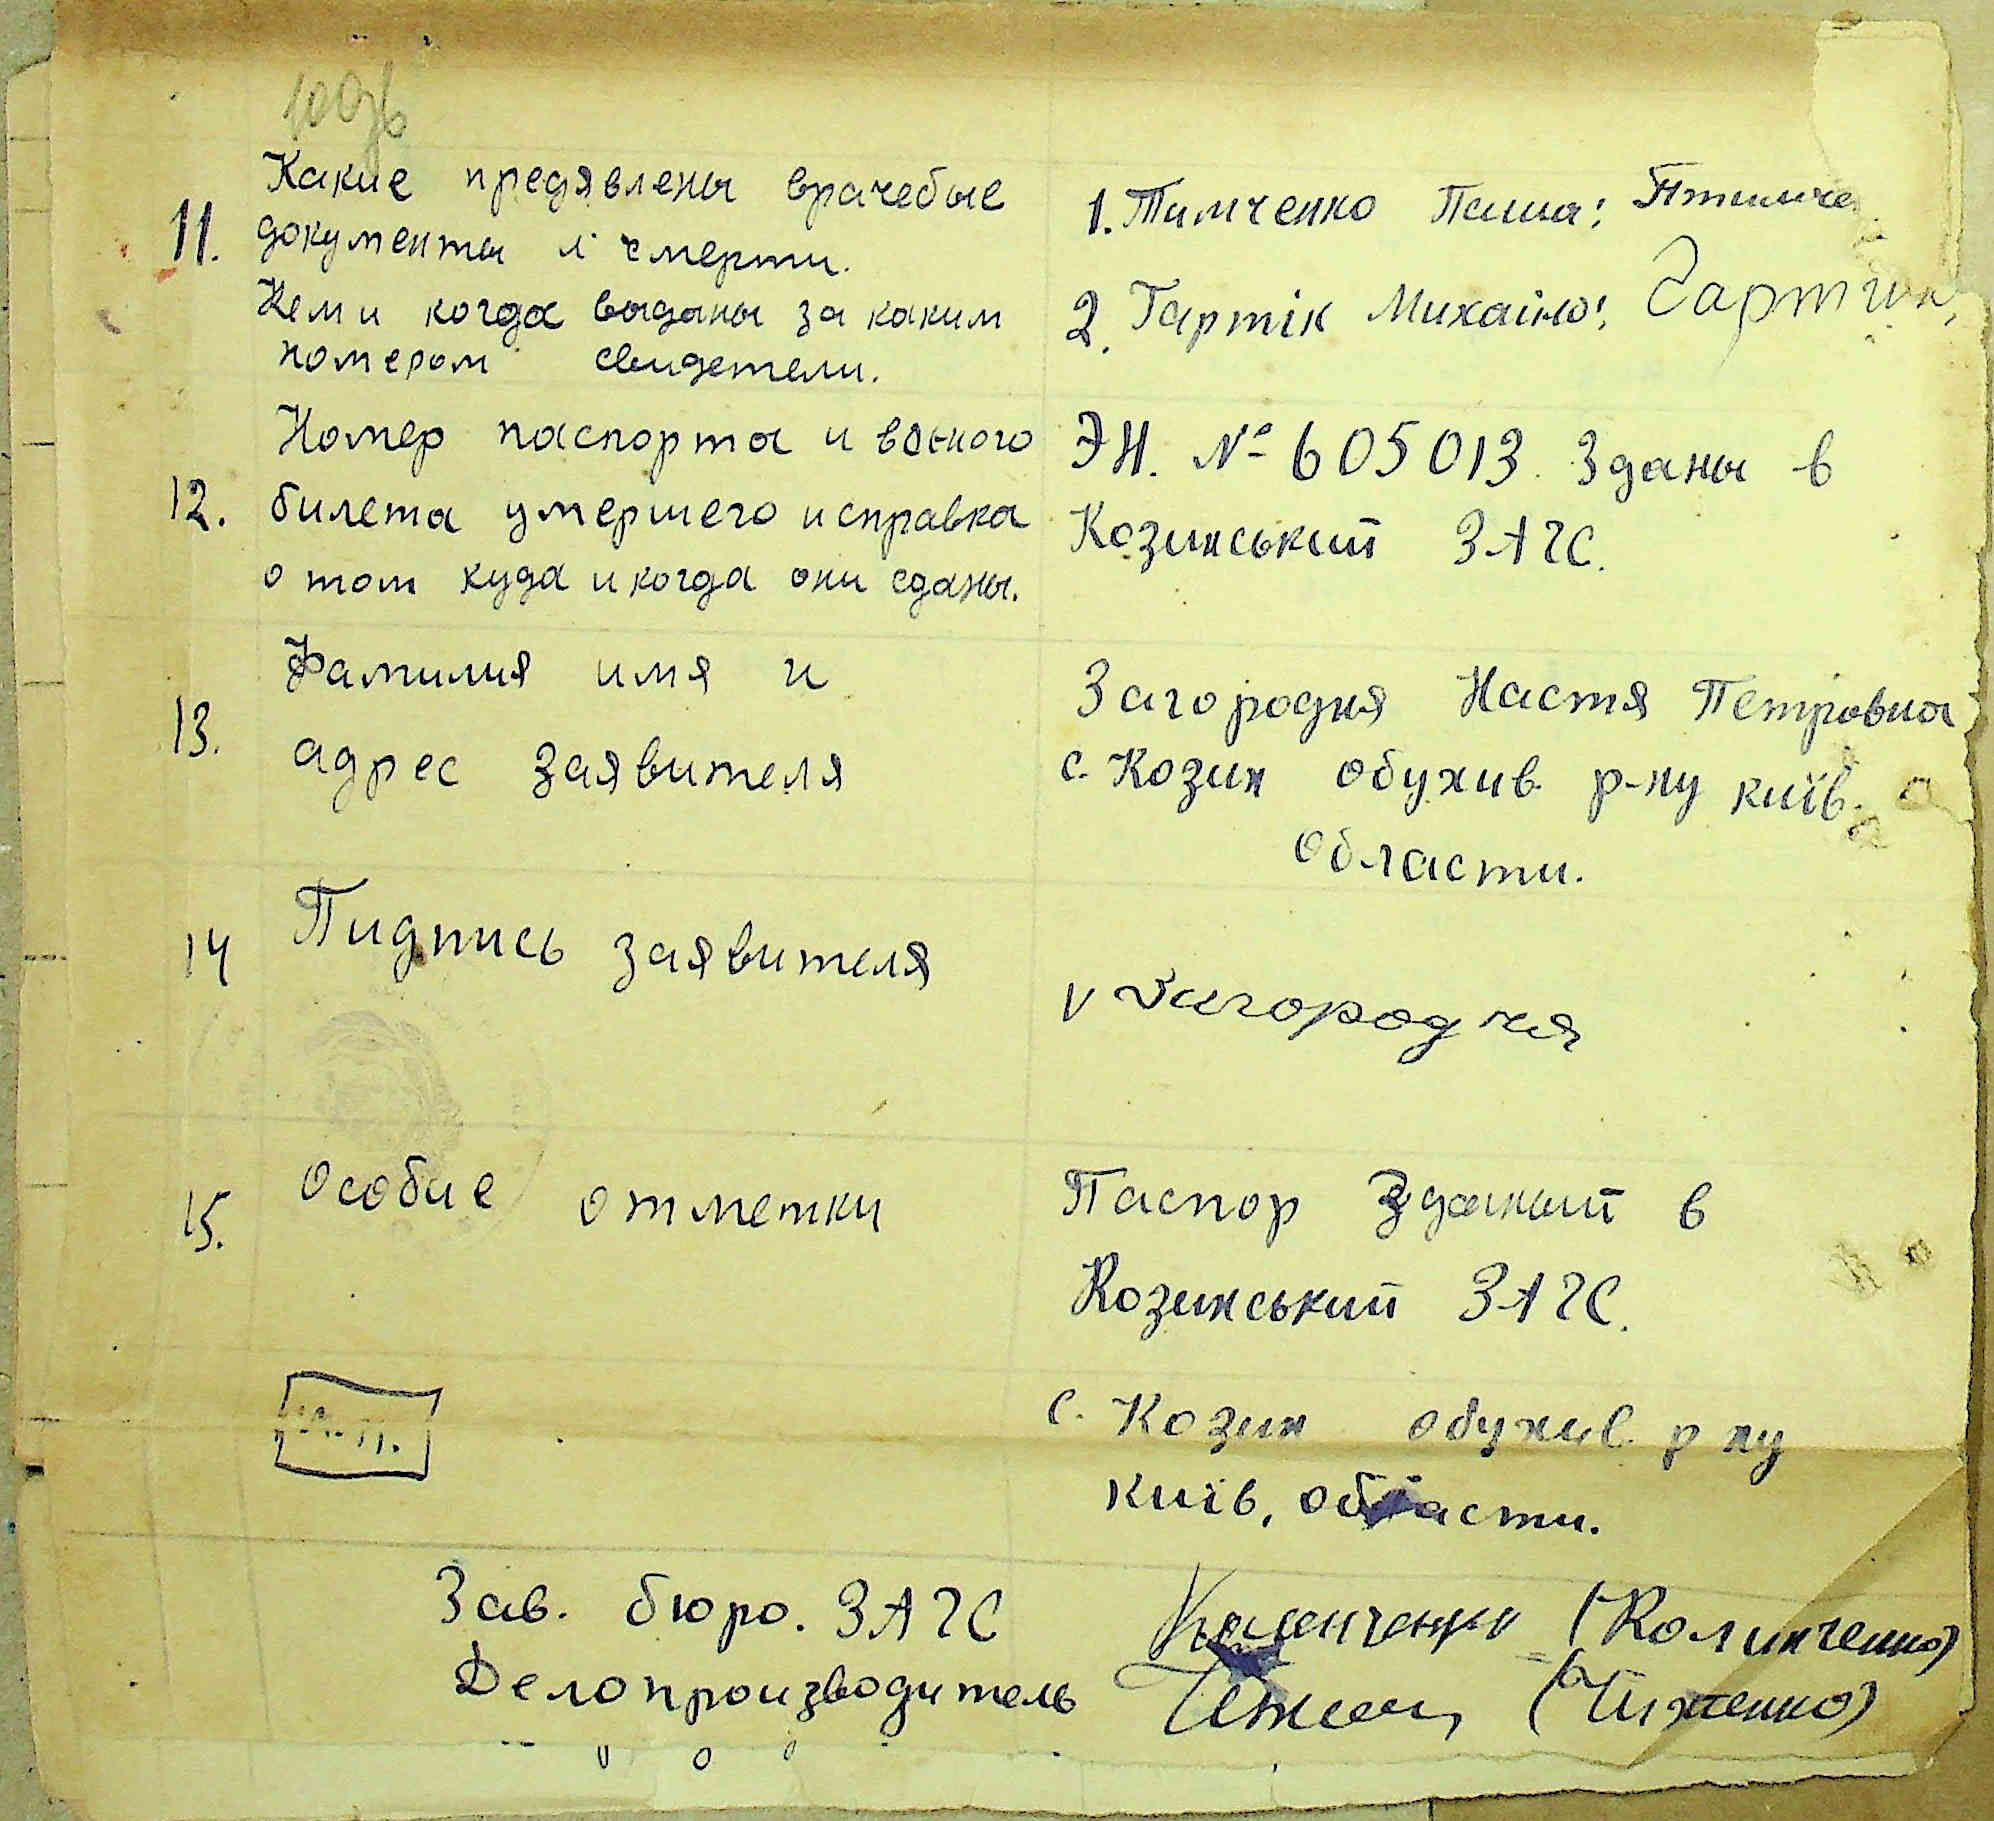 100зв
11.
Какие предявлены врачебые
документы и смерти.
Кем и когда выданы за каким
номером свидетели.
1. Тимченко Паша:
2. Гартік Михаіло:
12.
Номер паспорта и воєного
билета умершего и справка
о том куда и когда они сданы.
ЭН. № 605013. Зданы в
Козинський ЗАГС.
13.
Фамилия имя и
адрес заявителя
Загородня Настя Петровна
с. Козин обухив. р-ну київ.
области.
14
Пидпись заявителя
v Загородня
15.
Особие отметки
Паспор Зданый в
Козинський ЗАГС.
с. Козин обухив. р ну
київ, области.
М.П.
Зав. бюро. ЗАГС (Колинченко)
Делопроизводитель